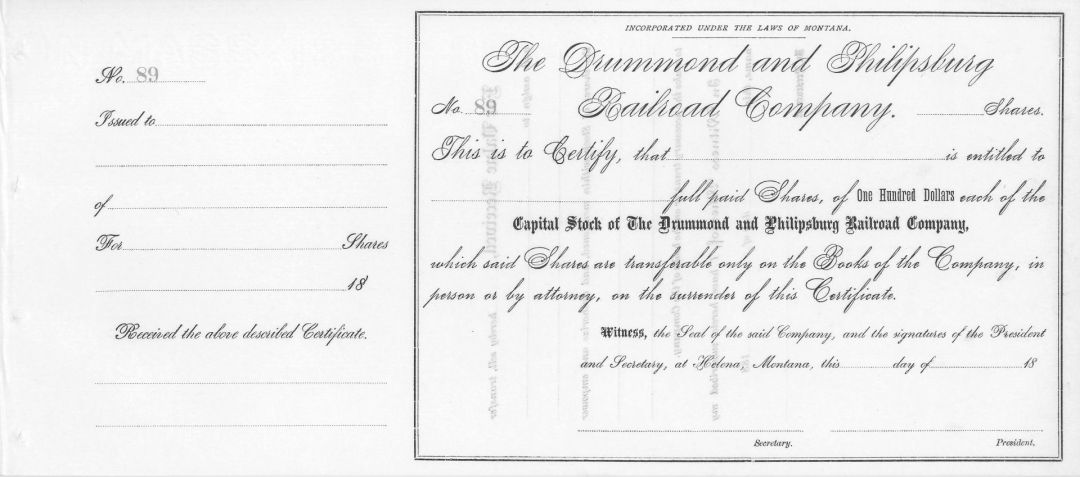 No. 89
Issued to
of
For Shares
18
Received the above described Certificate.
INCORPORATED UNDER THE LAWS OF MONTANA.
The Drummond and Philipsburg
No. 89 Railroad Company. Shares.
This is to Certify, that is entitled to
full paid Shares, of One Hundred Dollars each of the
Capital Stock of The Drummond and Philipsburg Railroad Company,
which said Shares are transferable only on the Books of the Company, in
person or by attorney, on the surrender of this Certificate.
Witness, the Seal of the said Company, and the signatures of the President
and Secretary, at Helena, Montana, this day of 18
Secretary. President.